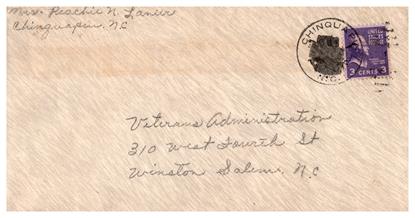 Mrs. Reachie N. Lanier
Chinquapin, N.C
CHINQUAPIN
N.C.
UNITED
STATES
3 CENTS 3
Veterans Administration
310 West Fourth St
Winston Salem, N.C